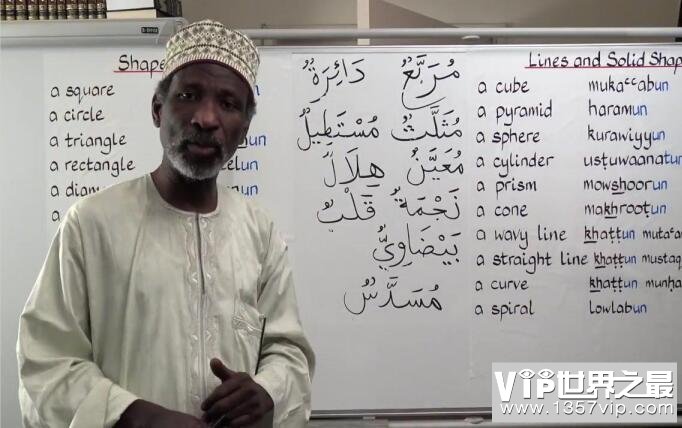 Shape
a square
a circle
a triangle un
a rectangle un
a
a
مُرَبَّعٌ دَائِرَةٌ
مُثَلَّثٌ مُسْتَطِيلٌ
مُعَيَّنٌ هِلَالٌ
نَجْمَةٌ قَلْبٌ
بَيْضَاوِيٌّ
مُسَدَّسٌ
Lines and Solid Shap
a cube mukaᶜᶜabun
a pyramid haramun
a sphere kurawiyyun
a cylinder usṭuwaanatun
a prism mowshoorun
a cone makhrooṭun
a wavy line khaṭṭun mutaᶜar
a straight line khaṭṭun mustaq
a curve khaṭṭun munḥa
a spiral lowlabun
VIP世界之最
www.1357vip.com